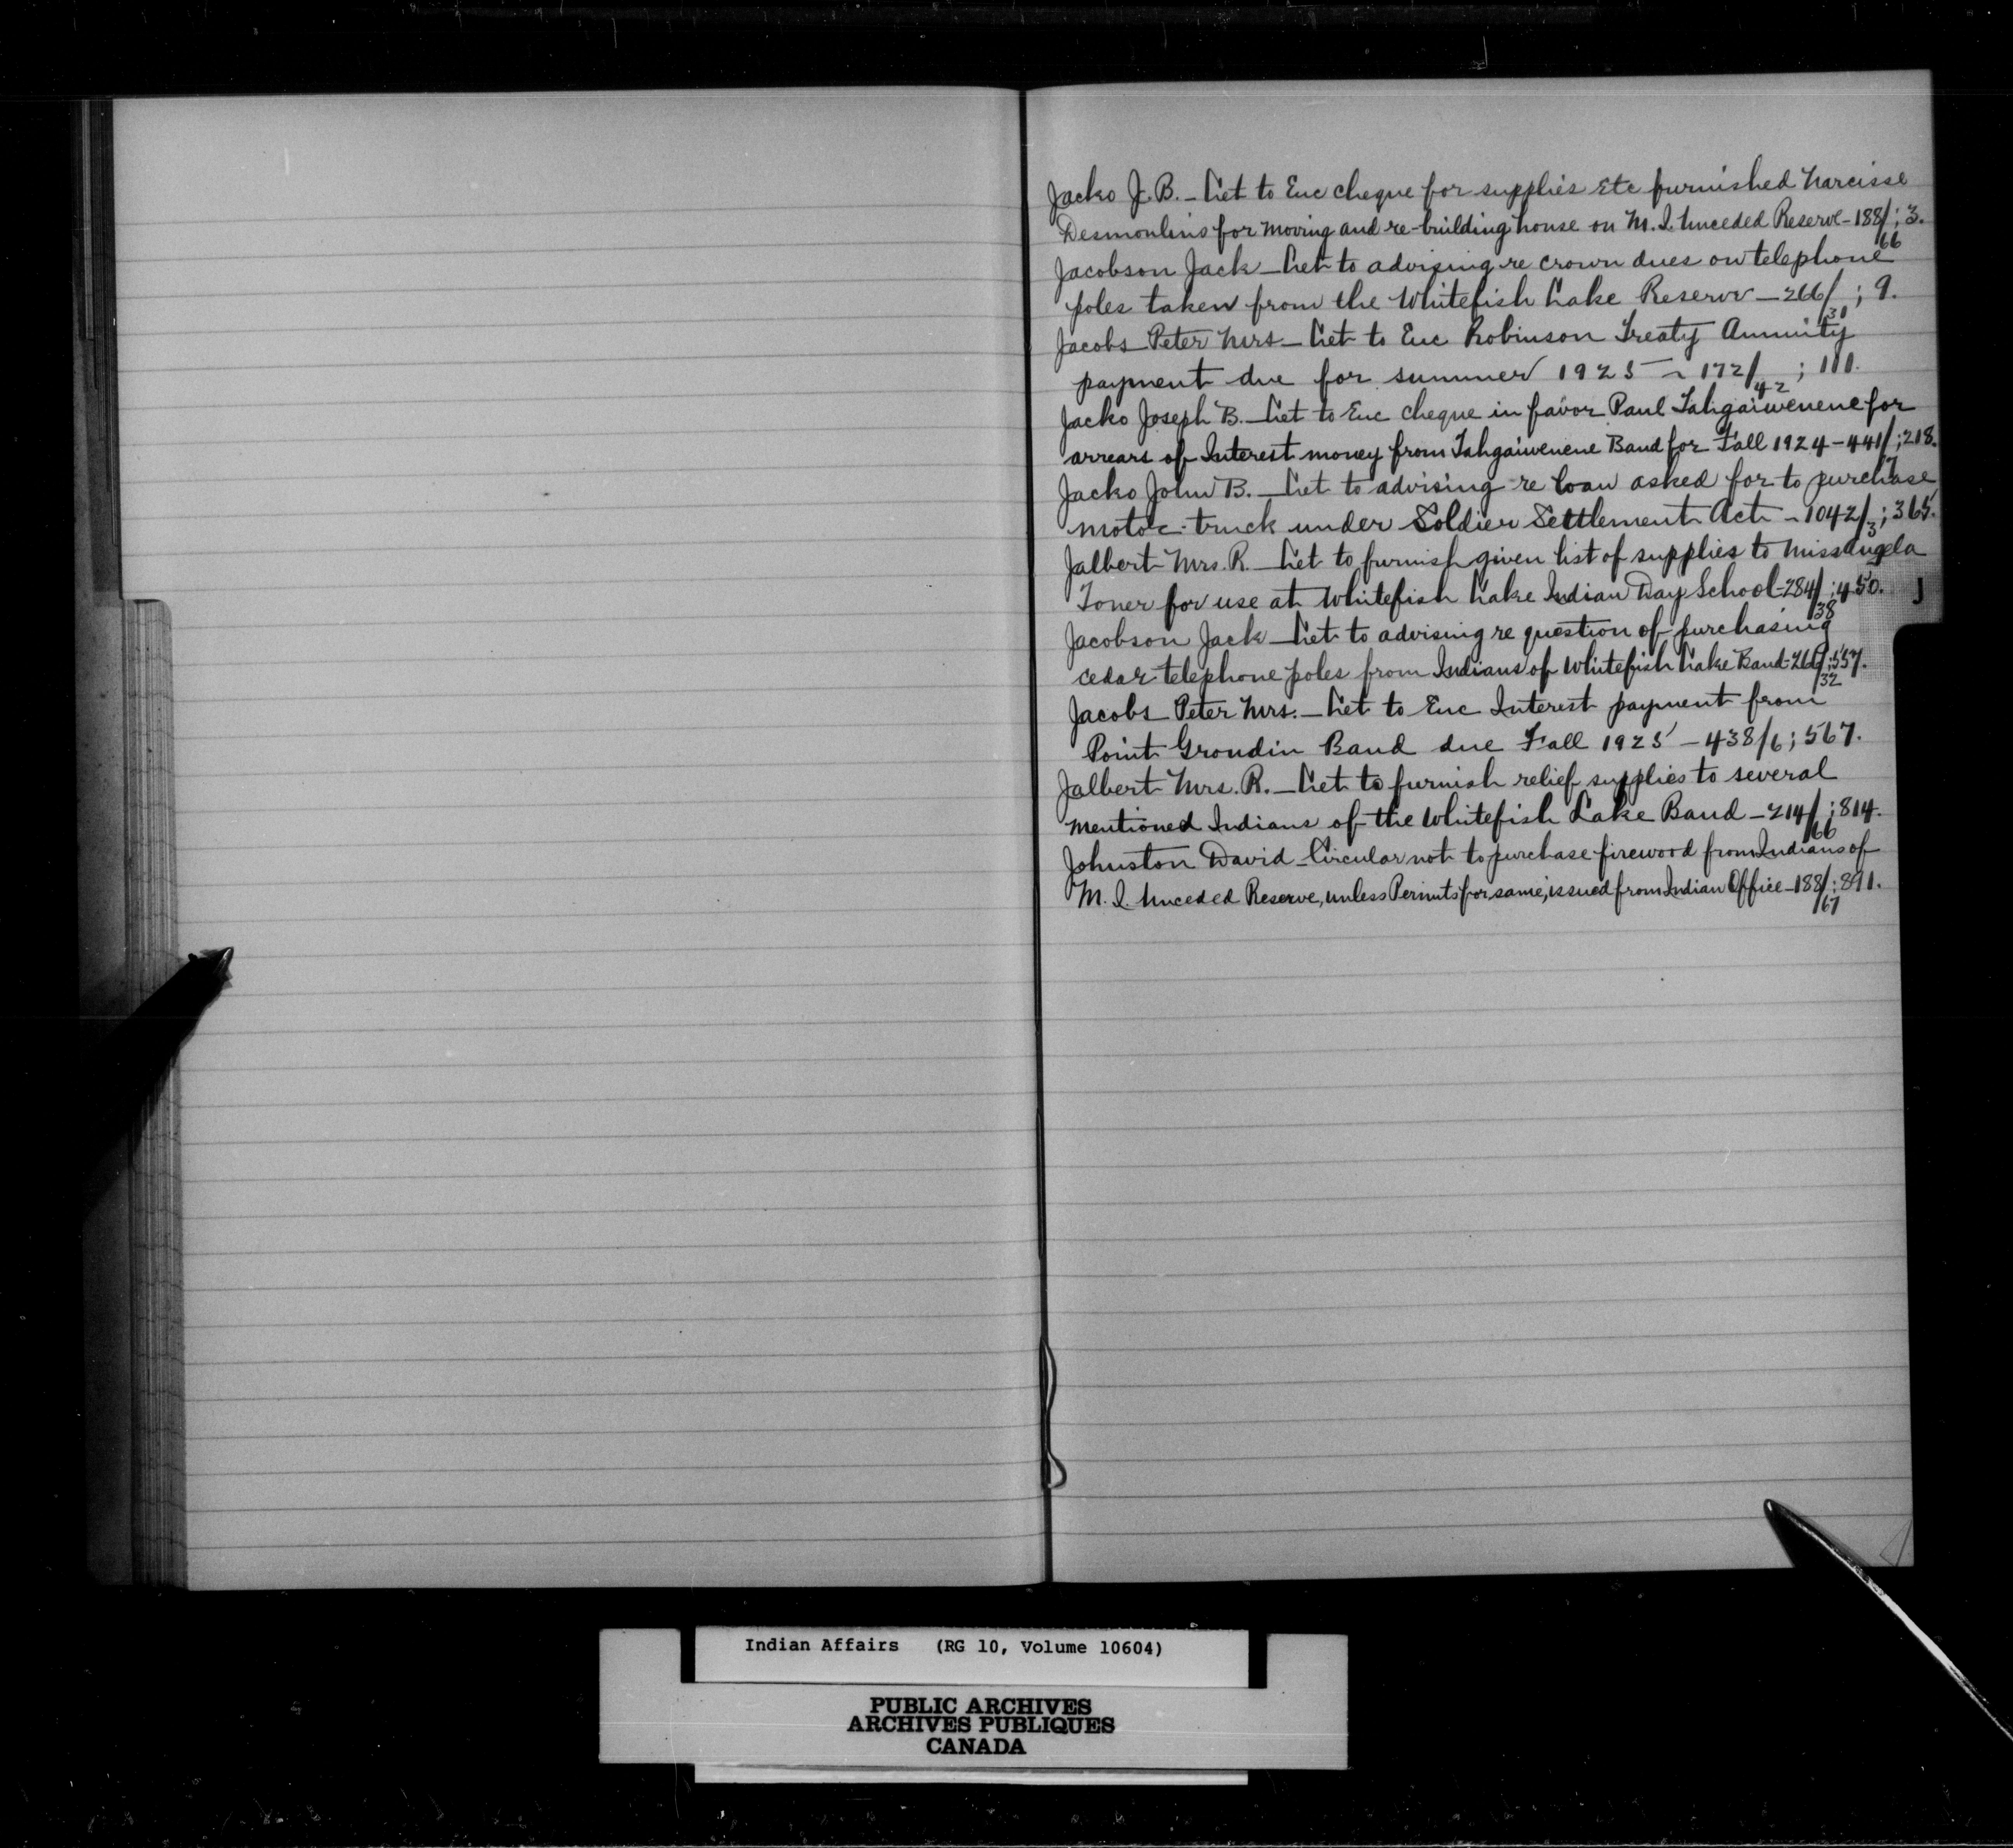 Jacko J. B. – Let to Enc cheque for supplies Etc furnished Narcisse
Desmoulins for moving and re-building house on M. I. Unceded Reserve – 188/66; 3.
Jacobson Jack – Let to advising re crown dues on telephone
poles taken from the Whitefish Lake Reserve – 266/31; 9.
Jacobs Peter Mrs – Let to Enc Robinson Treaty Annuity
payment due for summer 1925 – 172/42; 111.
Jacko Joseph B. – Let to Enc cheque in favor Paul Tahgaiwenene for
arrears of Interest money from Tahgaiwenene Band for Fall 1924 – 441/7; 218.
Jacko John B. – Let to advising re loan asked for to purchase
motor truck under Soldier Settlement Act – 1042/3; 365.
Jalbert Mrs. R. – Let to furnish given list of supplies to Miss Angela
Toner for use at Whitefish Lake Indian Day School – 284/38; 450.
J
Jacobson Jack – Let to advising re question of purchasing
cedar telephone poles from Indians of Whitefish Lake Band – 266/32; 557.
Jacobs Peter Mrs. – Let to Enc Interest payment from
Point Grondin Band due Fall 1925 – 438/6; 567.
Jalbert Mrs. R. – Let to furnish relief supplies to several
mentioned Indians of the Whitefish Lake Band – 214/66; 814.
Johnston David – Circular not to purchase firewood from Indians of
M. I. Unceded Reserve, unless Permits for same, issued from Indian Office – 188/67; 891.
Indian Affairs (RG 10, Volume 10604)
PUBLIC ARCHIVES
ARCHIVES PUBLIQUES
CANADA